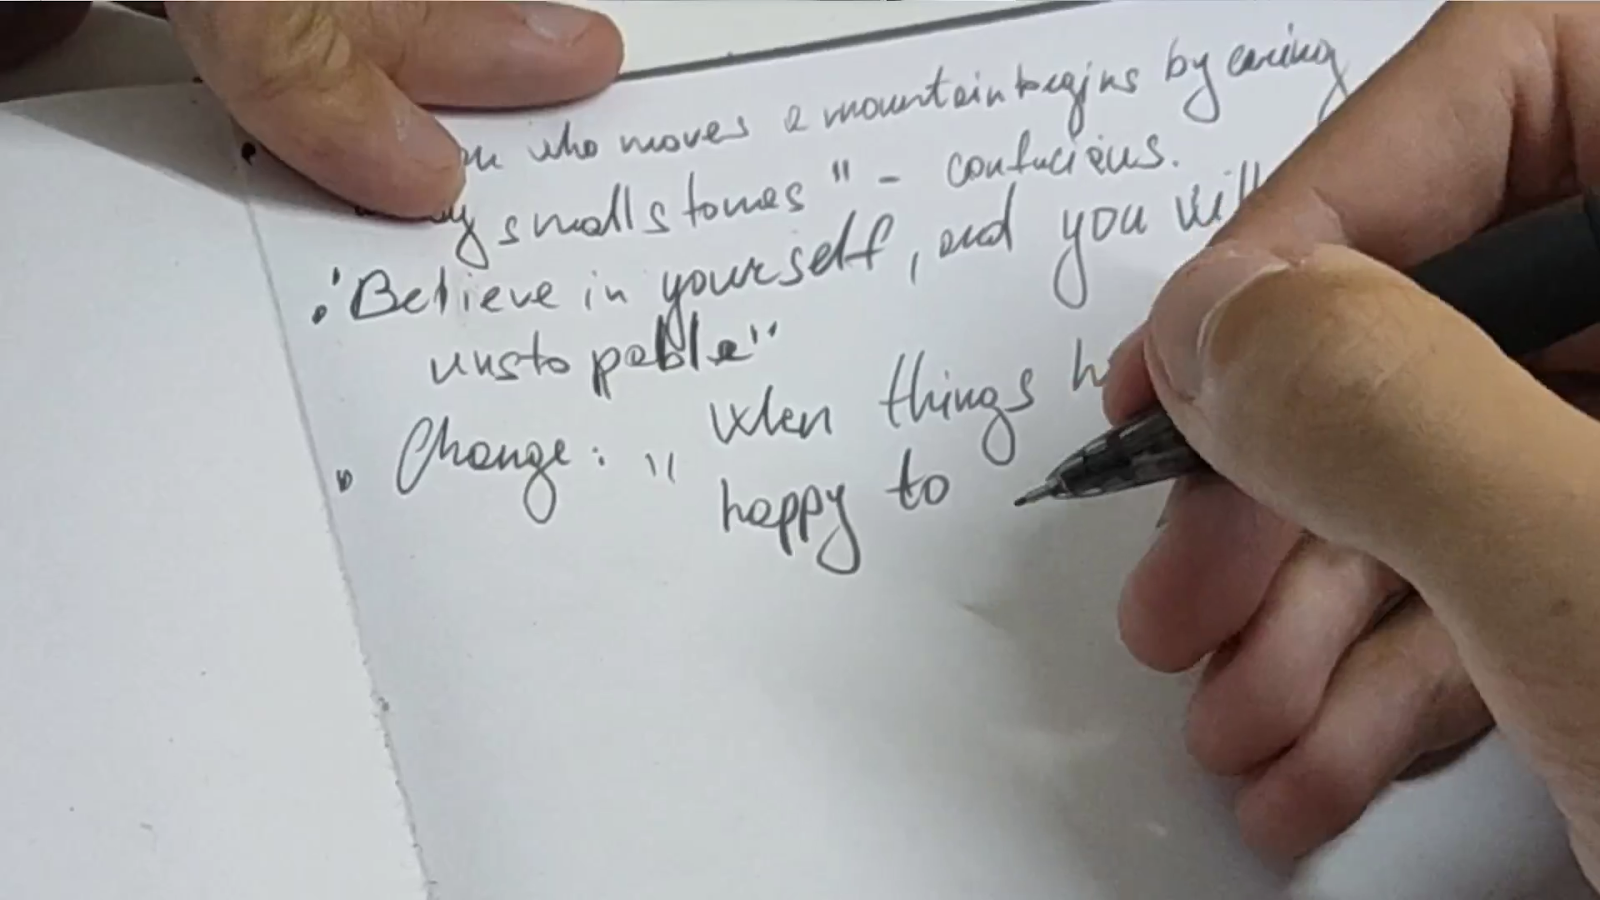 who moves a mountain begins by caring
small stones" - confucious.
"Believe in yourself, and you will
unstopable"
Change: " When things
happy to